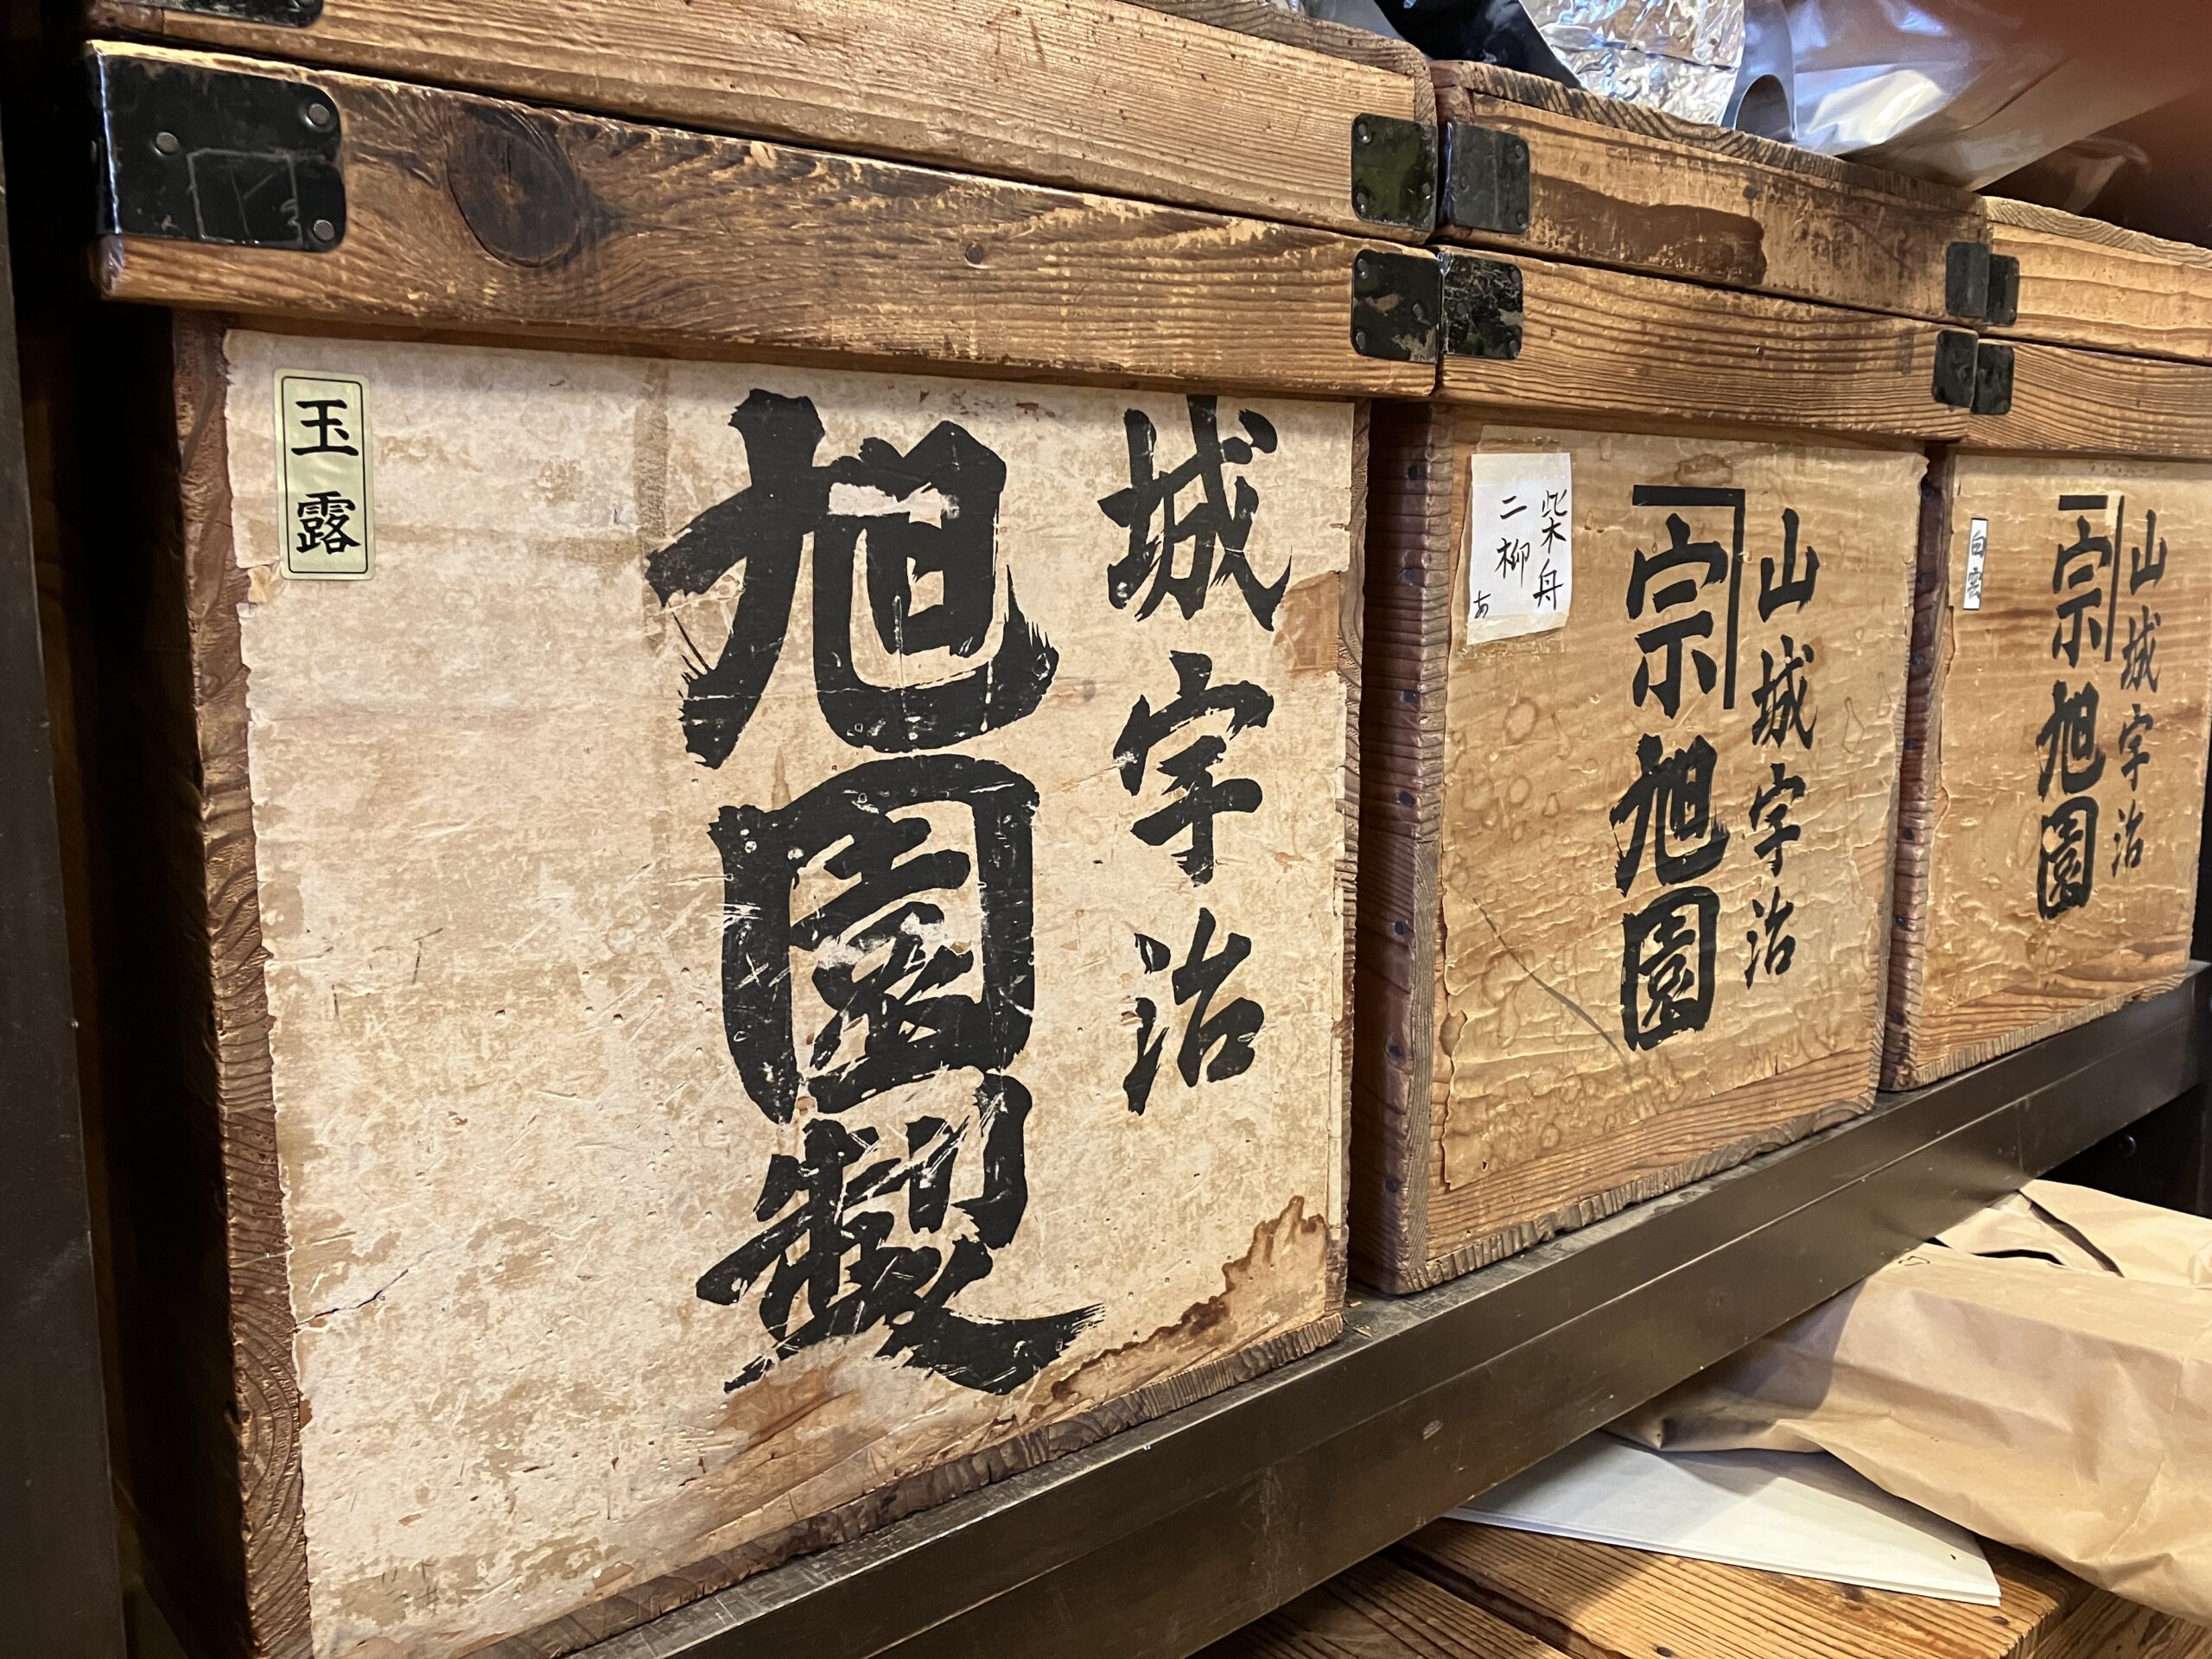 城宇治
旭園製
玉露
山城宇治
宗旭園
柴舟
二柳
あ
山城宇治
宗旭園
白雲